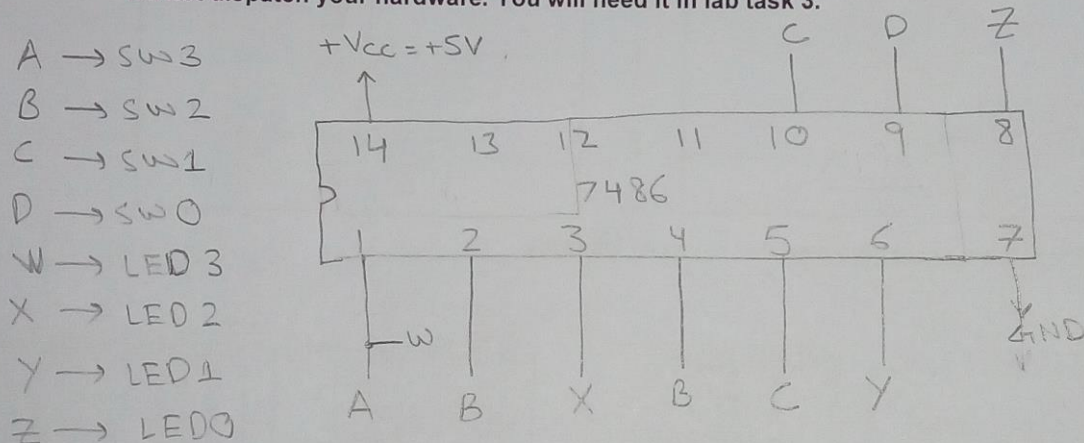 your hardware. You will need it in lab task 3.
A → SW3
B → SW2
C → SW1
D → SW0
W → LED 3
X → LED 2
Y → LED1
Z → LED0
+Vcc = +5V
C D Z
14 13 12 11 10 9 8
7486
1 2 3 4 5 6 7
W
GND
A B X B C Y